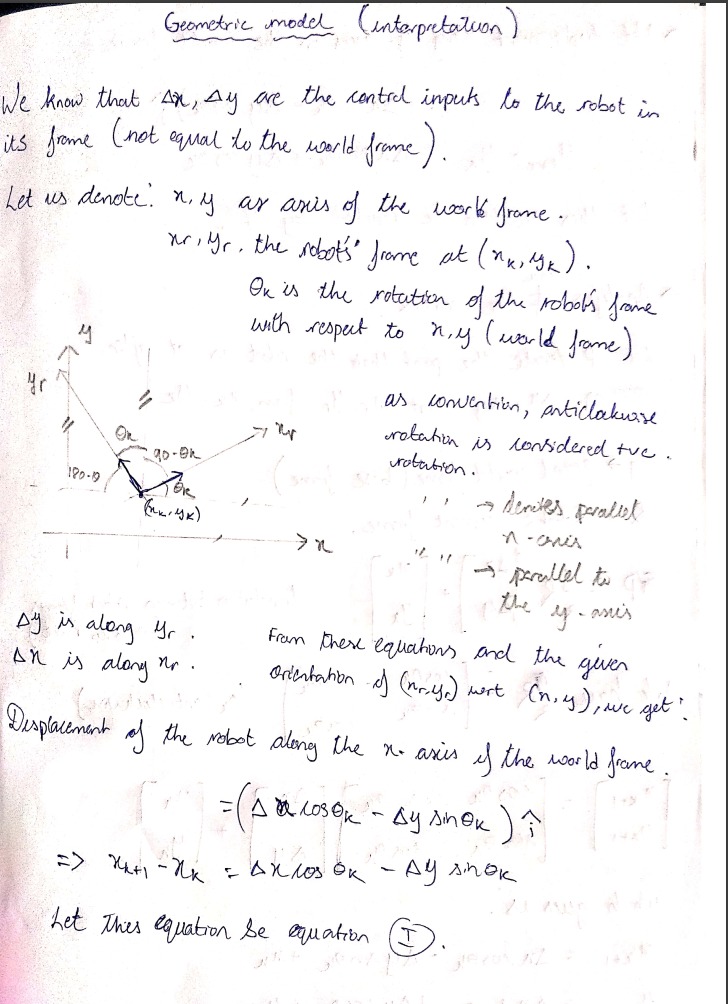 Geometric model (interpretation)
We know that Δx, Δy are the control inputs to the robot in
its frame (not equal to the world frame).
Let us denote: x, y as axis of the world frame.
xr, yr, the robots' frame at (xk, yk).
θk is the rotation of the robots frame
with respect to x, y (world frame)
y
yr
as convention, anticlockwise
rotation is considered +ve.
rotation.
θk
90-θk
xr
180-θ
θk
(xk, yk)
x
' ' → denotes parallel
x-axis
" " → parallel to
the y-axis
Δy is along yr.
Δx is along xr.
From these equations and the given
orientation of (xr, yr) wrt (x, y), we get:
Displacement of the robot along the x. axis of the world frame.
= (Δx cosθk - Δy sinθk) î
=> xk+1 - xk = Δx cos θk - Δy sinθk
Let this equation be equation (I).